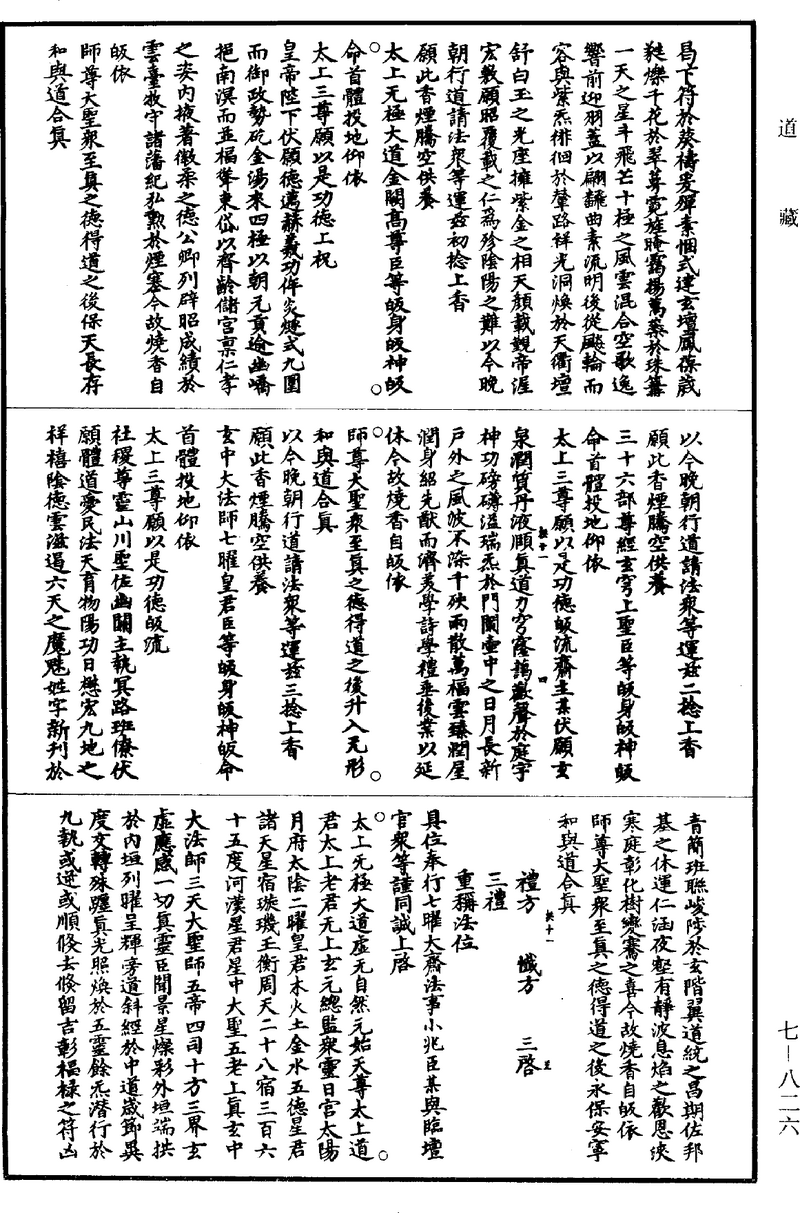 道藏
七—八二六
昌下符於葵禱爰殫素悃式建玄壇鳳葆葳
蕤爍千花於翠葆霓旌晻靄揚萬蕊於珠籌
一天之星斗飛芒十極之風雲混合空歌逸
響前迎羽蓋以翩躚曲素流明後從飈輪而
容與紫炁徘徊於輦路祥光洞煥於天衢壇
舒白玉之光座擁紫金之相天顏載覩帝渥
宏敷願昭覆載之仁爲殄陰陽之難以今晚
朝行道請法衆等運茲初捻上香
願此香煙騰空供養
太上无極大道金闕高尊臣等皈身皈神皈
命首體投地仰依
太上三尊願以是功德上祝
皇帝陛下伏願德邁赫羲功侔炎燧式九圍
而御政勢矻金湯來四極以朝元貢逾幽嶓
挹南溟而並福肇東岱以齊齡儲宮稟仁孝
之姿内掖著徽柔之德公卿列辟昭成績於
雲臺牧守諸藩紀弘勳於煙塞今故燒香自
皈依
師尊大聖衆至真之德得道之後保天長存
和與道合真
以今晚朝行道請法衆等運茲二捻上香
願此香煙騰空供養
三十六部尊經玄穹上聖臣等皈身皈神皈
命首體投地仰依
太上三尊願以是功德皈流齋主某伏願玄
泉潤質丹液頤真道力穹窿藹歡聲於庭宇
神功磅礡溢瑞炁於門闌壺中之日月長新
戶外之風波不染千殃雨散萬福雲臻潤屋
潤身紹先猷而濟美學詩學禮垂後業以延
休今故燒香自皈依
師尊大聖衆至真之德得道之後升入无形
和與道合真
以今晚朝行道請法衆等運茲三捻上香
願此香煙騰空供養
玄中大法師七曜皇君臣等皈身皈神皈命
首體投地仰依
太上三尊願以是功德皈流
社稷尊靈山川聖佐幽關主執冥路班僚伏
願體道愛民法天育物陽功日懋宏九地之
祥禧陰德雲滋遏六天之魔魅姓字新刊於
青簡班聯峻陟於玄階翼道統之昌期佐邦
基之休運仁涵夜壑有靜波息焰之歡恩浹
寒庭彰化樹變騫之喜今故燒香自皈依
師尊大聖衆至真之德得道之後永保安寧
和與道合真
禮方 懺方 三啓
三禮
重稱法位
具位奉行七曜大齋法事小兆臣某與臨壇
官衆等謹同誠上啓
太上无極大道虛无自然元始天尊太上道
君太上老君无上玄元總監衆靈日宮太陽
月府太陰二曜皇君木火土金水五德星君
諸天星宿璇璣玉衡周天二十八宿三百六
十五度河漢星君星中大聖五老上真玄中
大法師三天大聖師五帝四司十方三界玄
虛應感一切真靈臣聞景星燦彩外垣端拱
於内垣列曜呈輝旁道斜經於中道歲節異
度交轉殊躔真光照煥於五靈餘炁潛行於
九執或逆或順倏去倏留吉彰福祿之符凶